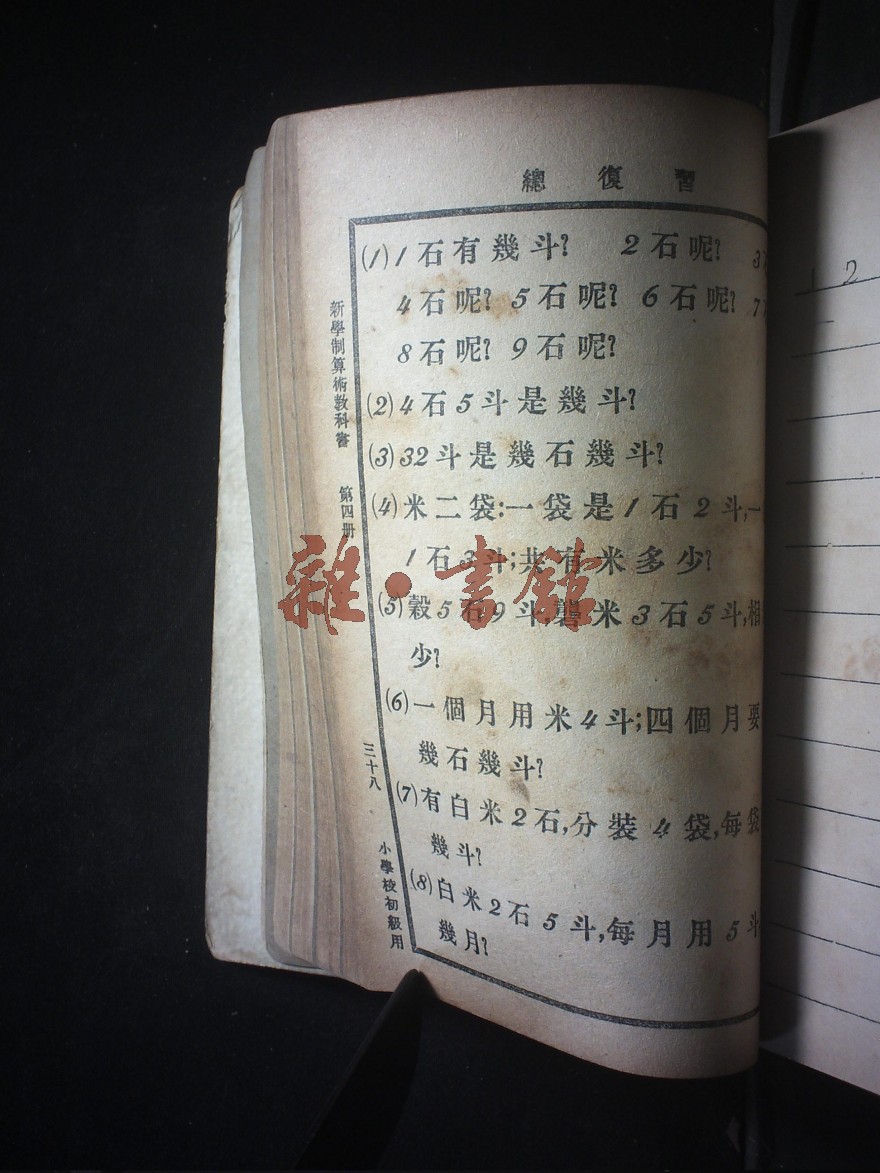 總復習
(1) 1石有幾斗? 2石呢? 3
4石呢? 5石呢? 6石呢? 7
8石呢? 9石呢?
(2) 4石5斗是幾斗?
(3) 32斗是幾石幾斗?
(4) 米二袋:一袋是1石2斗,一
1石3斗;共有米多少?
(5) 穀5石9斗,礱米3石5斗,相
少?
(6) 一個月用米4斗;四個月要
幾石幾斗?
(7) 有白米2石,分裝4袋,每袋
幾斗?
(8) 白米2石5斗,每月用5斗
幾月?
新學制算術教科書 第四册 三十八 小學校初級用
雜·書館
2